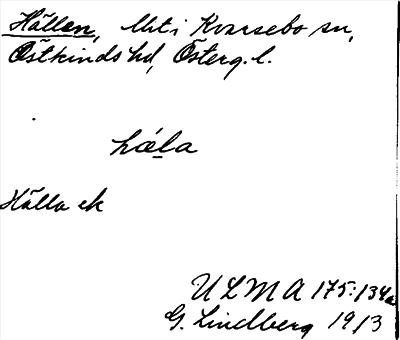 Hällen, Utt i Kvarsebo sn,
Östkinds hd, Österg. l.
hæla
Hälla ek
ULMA 175:134a
G. Lindberg 1913